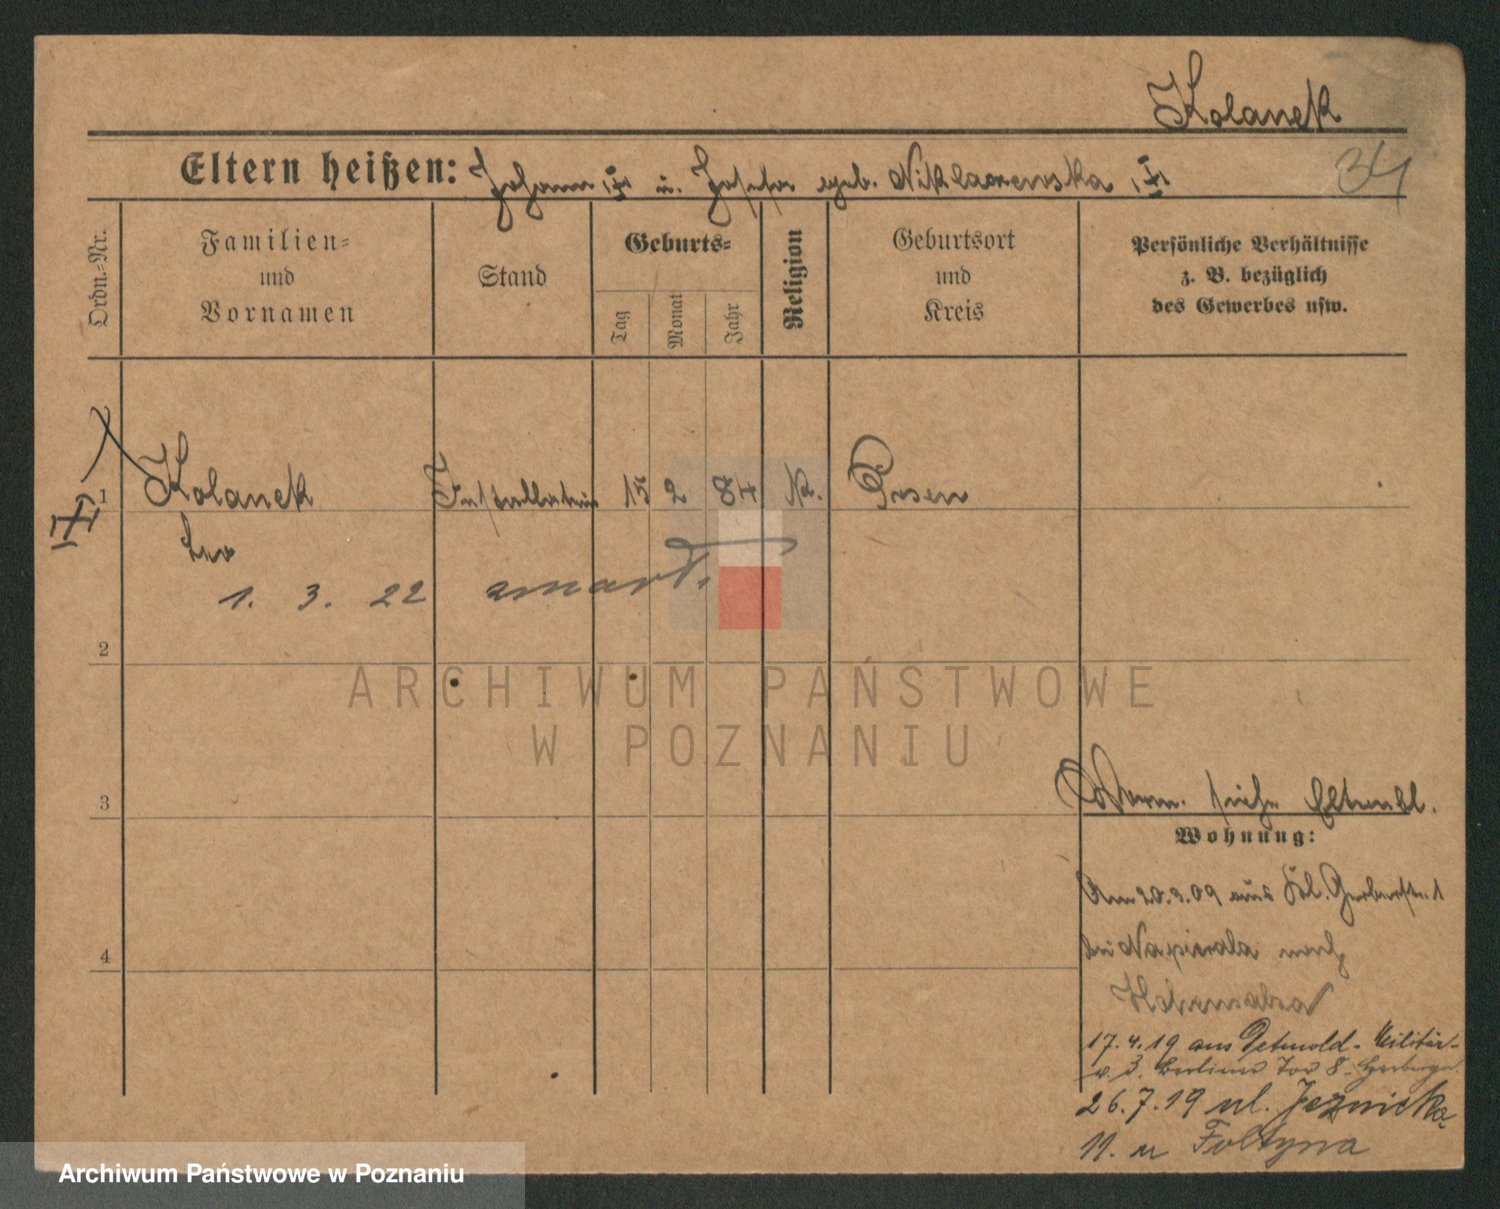 Kolanek
34
Eltern heißen: Johann u. Josefa geb. Niklaczewska
Ordn.-Nr.
Familien-
und
Vornamen
Stand
Geburts-
Tag
Monat
Jahr
Religion
Geburtsort
und
Kreis
Persönliche Verhältnisse
z. B. bezüglich
des Gewerbes usw.
1 Kolanek Installateur 15 2 84 K. Posen
Leo
1. 3. 22 zmarł.
2
ARCHIWUM PAŃSTWOWE
W POZNANIU
3
Vorm. siehe Elternbl.
Wohnung:
Am 20.3.09 aus Gerberstr. 1
bei Napierala nach
Hohensalza
17.4.19 aus Detmold - Militär-
v. Z. Berliner Tor 8
4
26.7.19 ul. Jeżnicka
11. u Foltyna
Archiwum Państwowe w Poznaniu